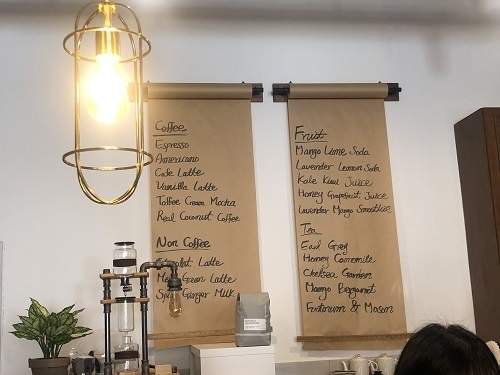 Coffee
Espresso
Americano
Cafe Latte
Vanilla Latte
Toffee Cream Mocha
Real Coconut Coffee
Non Coffee
Latte
Green Latte
Ginger Milk
Fruit
Mango Lime Soda
Lavender Lemon Soda
Kale Kiwi Juice
Honey Grapefruit Juice
Lavender Mango Smoothie
Tea
Earl Grey
Honey Camomile
Chelsea Garden
Mango Bergamot
& Mason